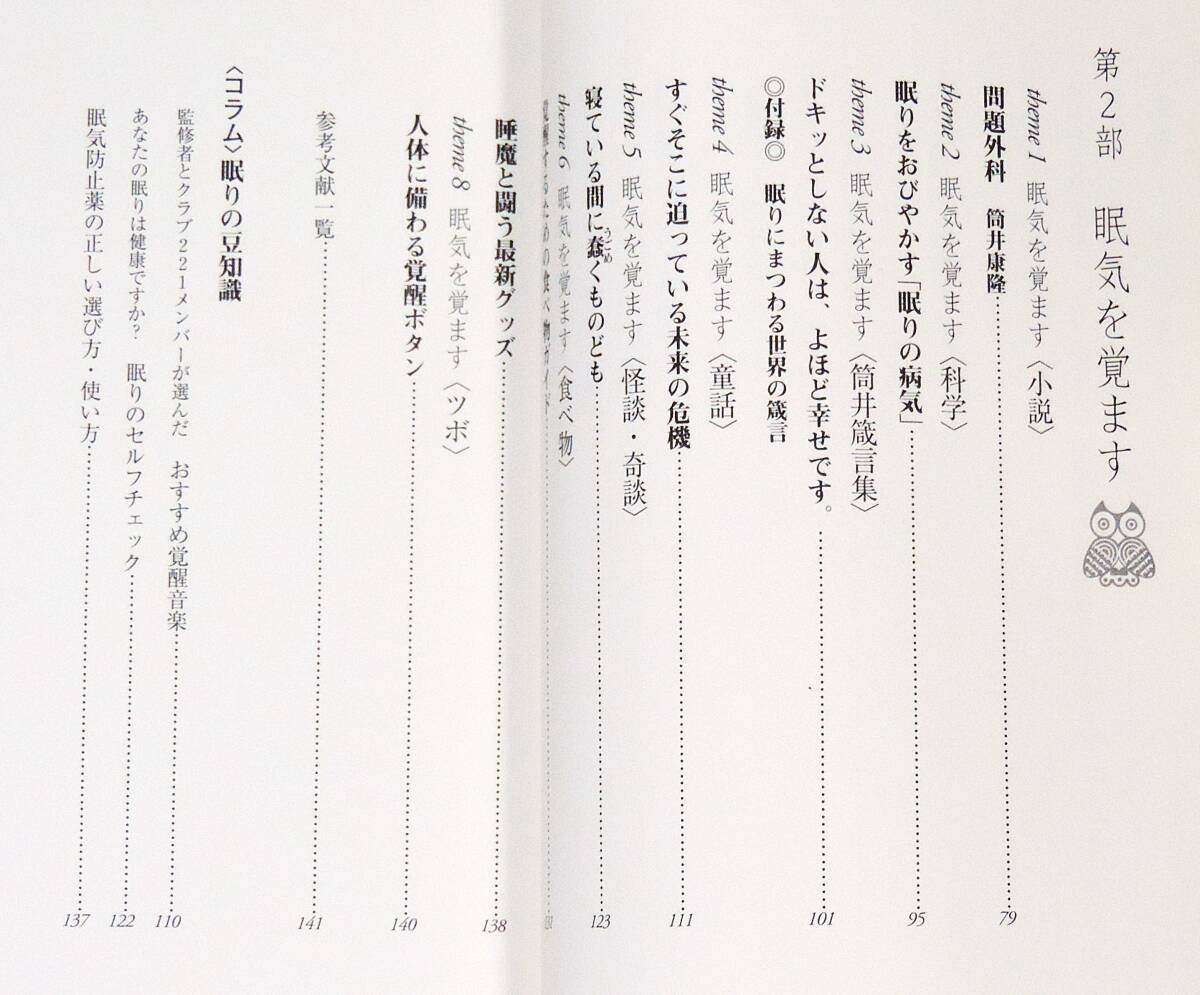 第2部 眠気を覚ます
theme 1 眠気を覚ます〈小説〉
問題外科 筒井康隆……79
theme 2 眠気を覚ます〈科学〉
眠りをおびやかす「眠りの病気」……95
theme 3 眠気を覚ます〈筒井箴言集〉
ドキッとしない人は、よほど幸せです。……101
◎付録◎ 眠りにまつわる世界の箴言
theme 4 眠気を覚ます〈童話〉
すぐそこに迫っている未来の危機……111
theme 5 眠気を覚ます〈怪談・奇談〉
寝ている間に蠢くものども……123
うごめ
theme 6 眠気を覚ます〈食べ物〉
覚醒するための食べ物ガイド……131
睡魔と闘う最新グッズ……138
theme 8 眠気を覚ます〈ツボ〉
人体に備わる覚醒ボタン……140
参考文献一覧……141
〈コラム〉眠りの豆知識
監修者とクラブ221メンバーが選んだ おすすめ覚醒音楽……110
あなたの眠りは健康ですか? 眠りのセルフチェック……122
眠気防止薬の正しい選び方・使い方……137